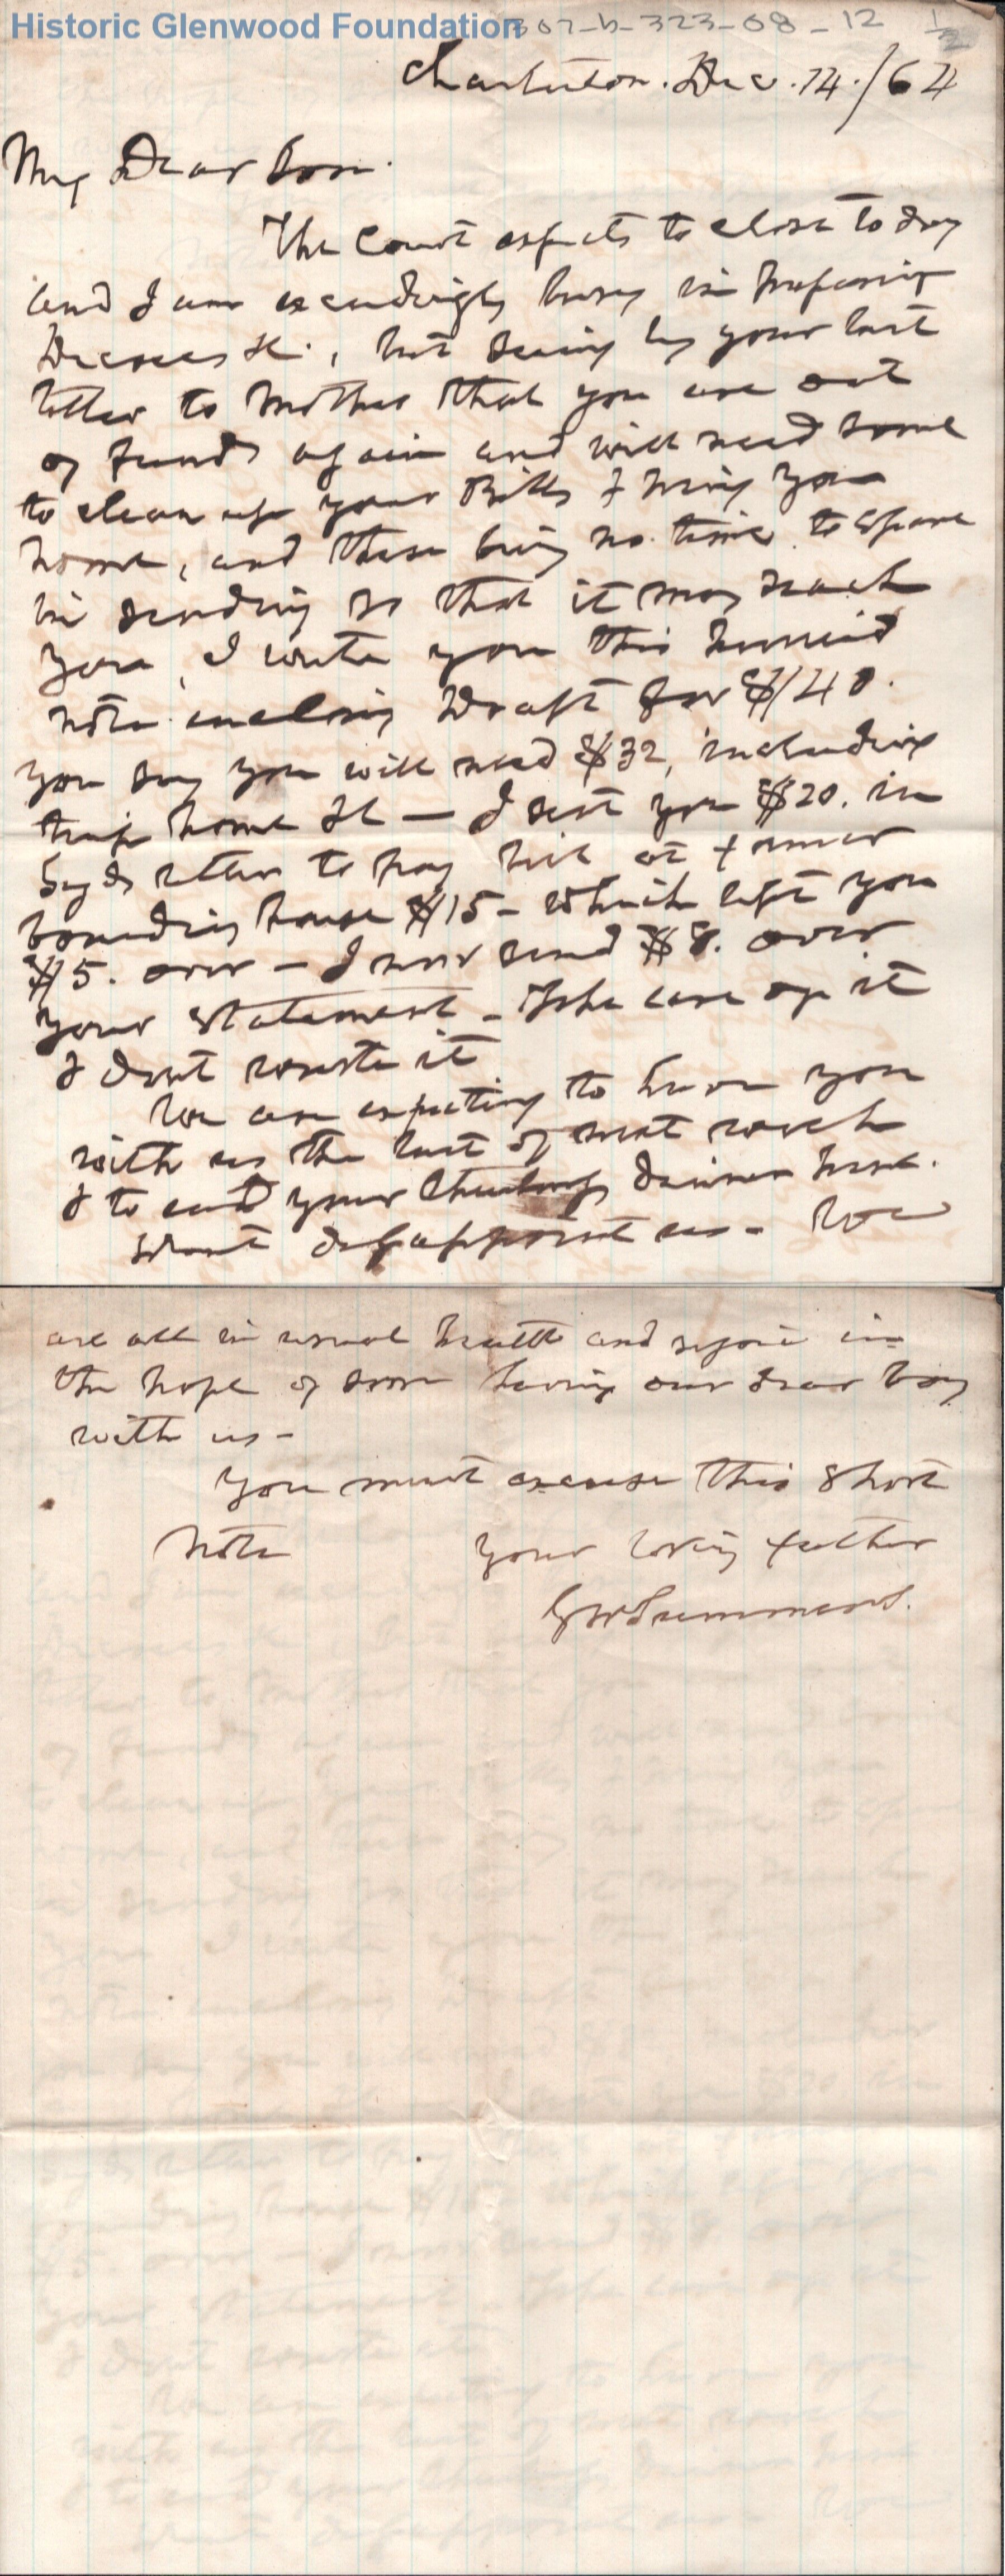 Historic Glenwood Foundation
307-b-323-08-12 1/2
Charleston. Dec. 14./64
My Dear Son.
The Court expects to close to day
and I am exceedingly busy in preparing
Decrees &c., but seeing by your last
letter to Mother that you are out
of funds again and will need some
to clean up your Bills & bring you
home, and there being no time to spare
in sending so that it may reach
you, I write you this hurried
note enclosing Draft for $40.
You say you will need $32, including
trip home &c — I sent you $20. in
Syd's letter to pay bill at former
boarding house $15 - which left you
$5. over - I now send $8. over
your statement - Take care of it
& dont waste it
We are expecting to have you
with us the last of next week
& to eat your Christmas dinner here.
Dont disappoint us - We
are all in usual health and rejoice in
the hope of soon having our dear boy
with us -
You must excuse this short
note Your loving father
GW Summers.